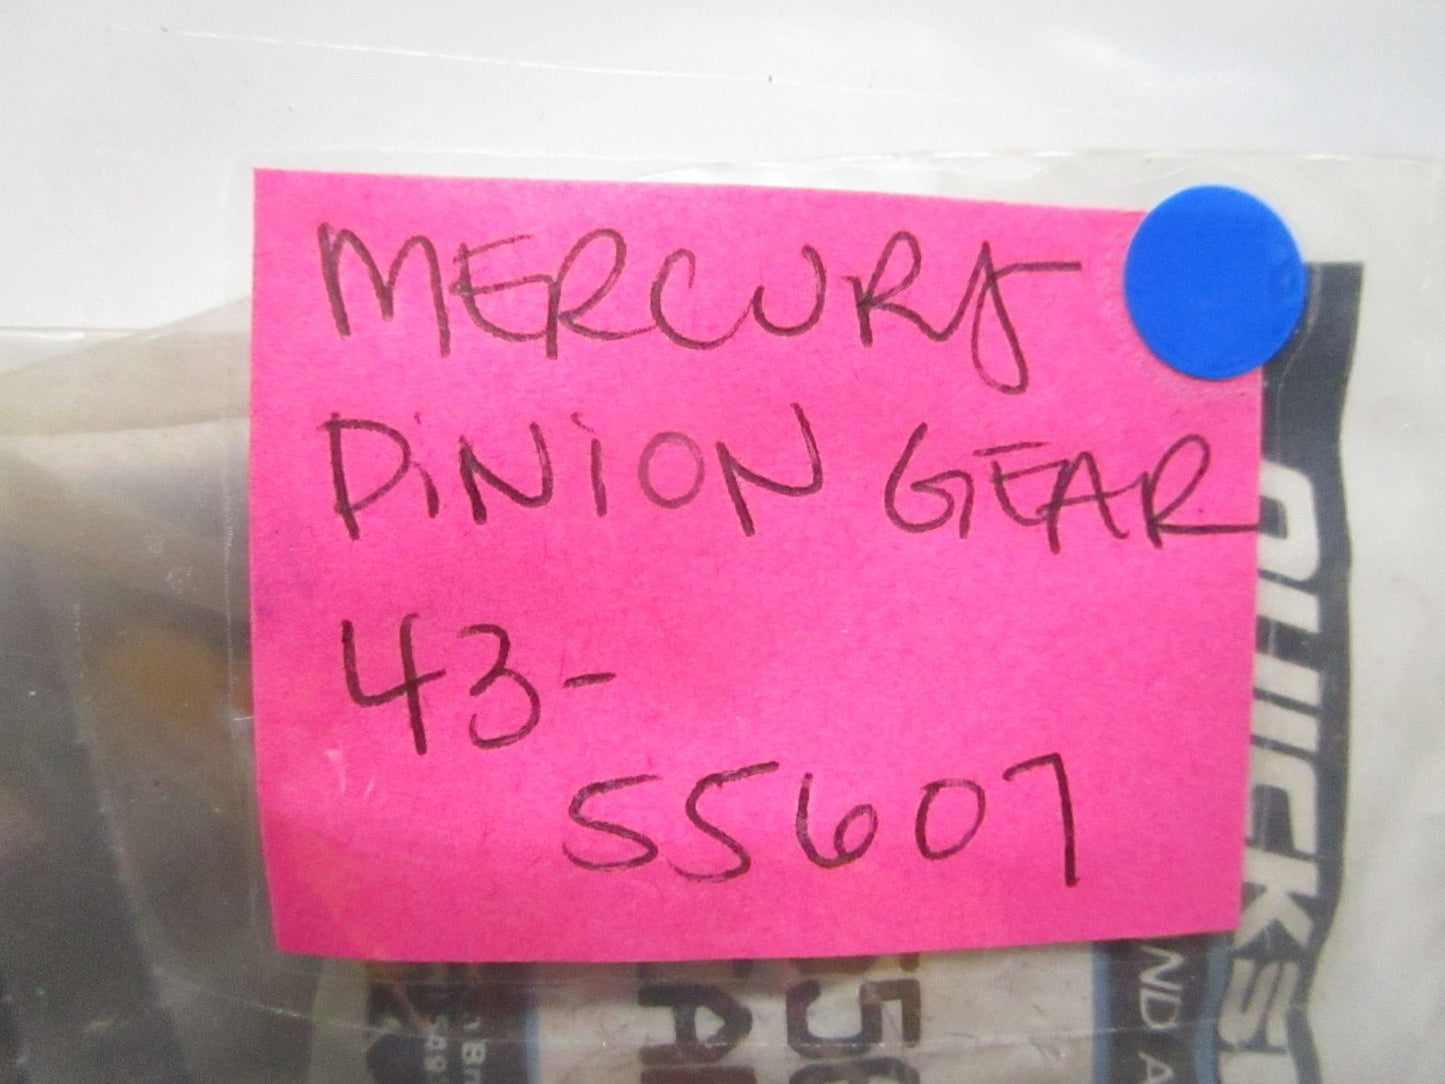 MERCURY
PiNiON GEAR
43-
55607
QUICKS
ND A